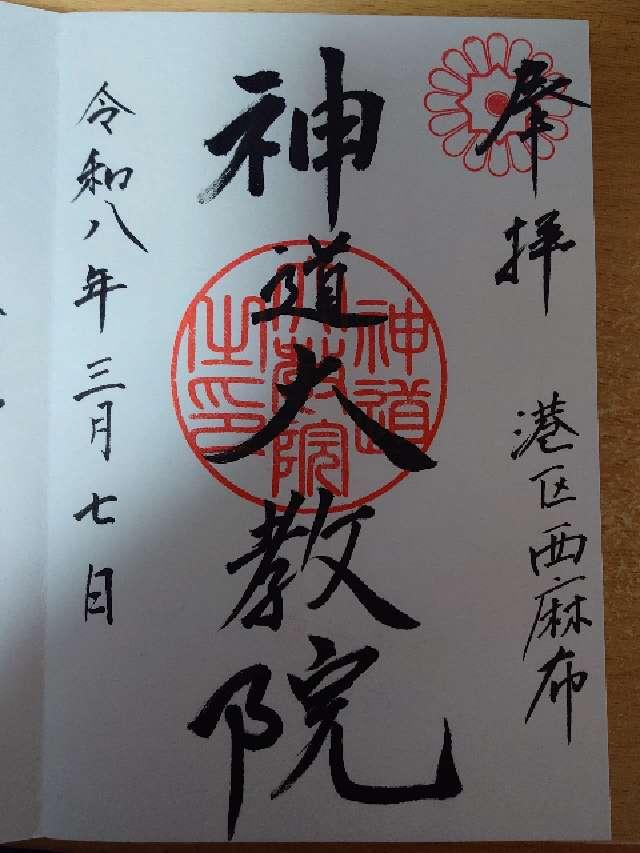 奉拝
港区西麻布
神道大教院
神道大教院之印
令和八年三月七日